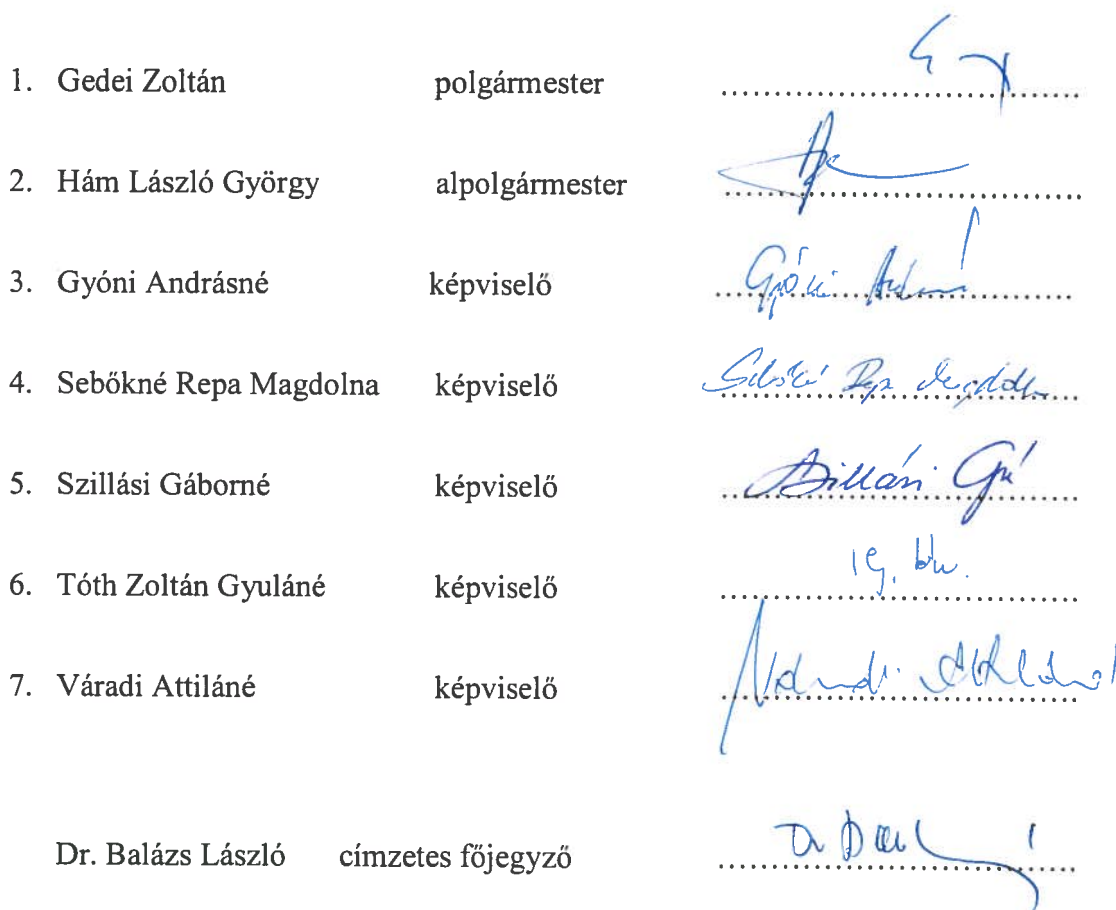 1. Gedei Zoltán polgármester
2. Hám László György alpolgármester
3. Gyóni Andrásné képviselő
4. Sebőkné Repa Magdolna képviselő
5. Szillási Gáborné képviselő Szillási
6. Tóth Zoltán Gyuláné képviselő
7. Váradi Attiláné képviselő Váradi Attiláné
Dr. Balázs László címzetes főjegyző Dr